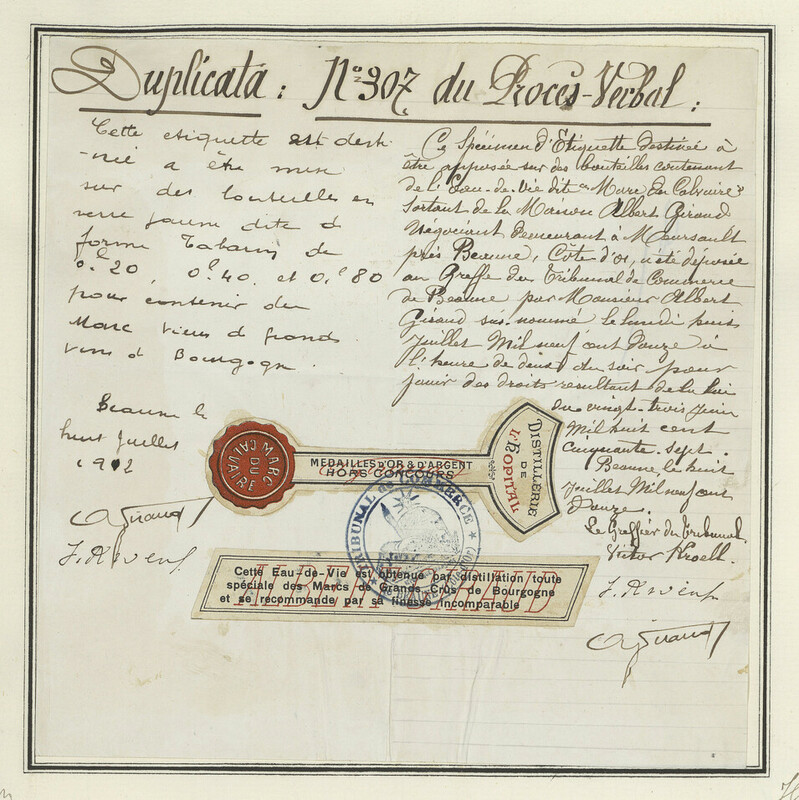 Duplicata : N° 307 du Procès-Verbal :
Cette etiquette est desti
-née a être mise
sur des bouteilles en
verre jaune dite d
forme Tabarin de
0l.20, 0l.40. et 0l.80
pour contenir du
Marc vieux d grands
vins d Bourgogne.
Beaune le
huit Juillet
1912
AGiraud
Ce Spécimen d'Etiquette destinée à
être apposée sur des bouteilles contenant
de l'Eau-de-Vie dite "Marc Du Calvaire"
Sortant de la Maison Albert Giraud
Négociant Demeurant à Meursault
près Beaune, Côte d'Or, a été déposée
au Greffe du Tribunal de Commerce
de Beaune par Monsieur Albert
Giraud sus-nommé le lundi huit
Juillet Mil neuf cent Douze à
l'heure de deux du soir pour
jouir des droits résultant de la Loi
du vingt-trois Juin
Mil huit cent
Cinquante-sept.
Beaune le huit
Juillet Mil neuf cent
Douze.
Le Greffier du Tribunal
Victor Kroell.
AGiraud
MARC
DU
CALVAIRE
MEDAILLES D'OR & D'ARGENT
HORS CONCOURS
DISTILLERIE
DE
L'HOPITAL
TRIBUNAL de COMMERCE
Cette Eau-de-Vie est obtenue par distillation toute
spéciale des Marcs de Grands Crûs de Bourgogne
et se recommande par sa finesse incomparable
ALBERT GIRAUD